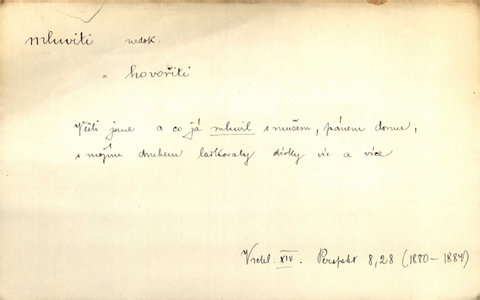 mluviti nedok.
= hovořiti
jsme a co já mluvil s mužem, pánem domu,
s mojím druhem laškovaly dívky víc a více
Vrchl. XIV. Perspekt 8,28 (1880-1884)